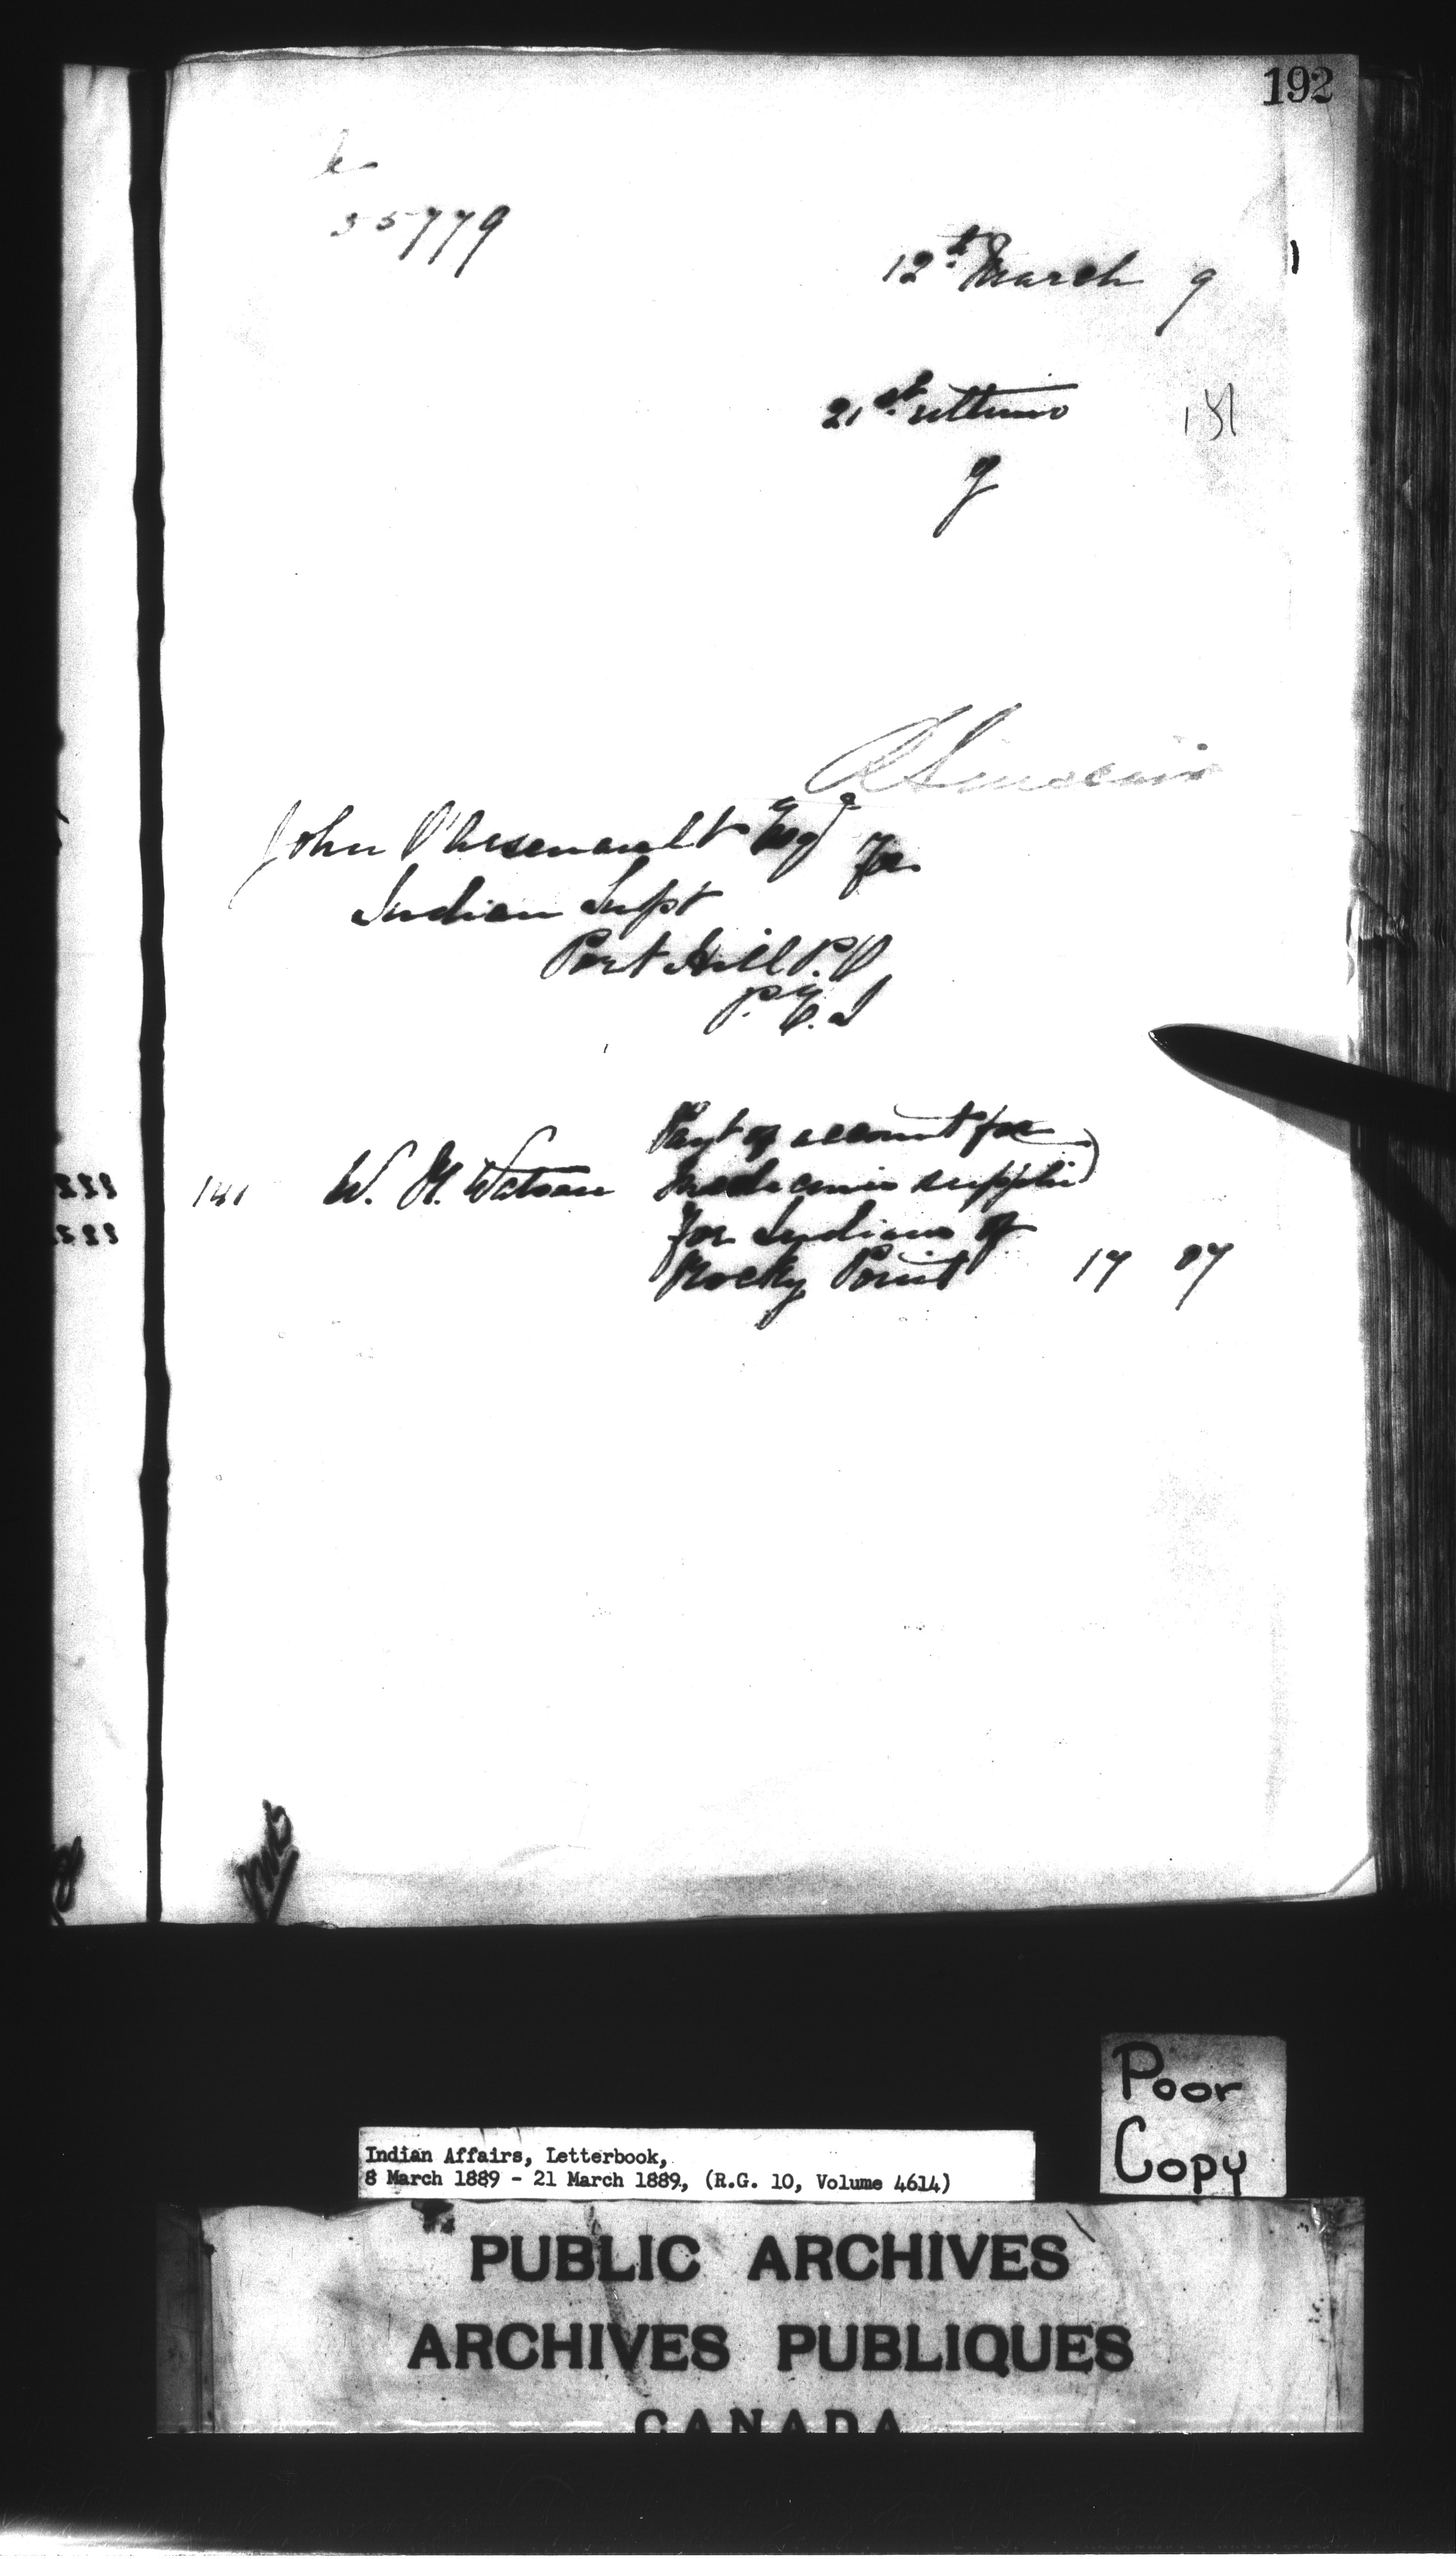 192
55779
12th March 9
21st ultimo
9
R Sinclair
John O'Arsenault Esqre For
Indian Supt
Port Hill P.O
P.E.I
141 W. H. Watson Payt of account for
Medicines supplied
for Indians of
Rocky Point 17 07
Poor
Copy
Indian Affairs, Letterbook,
8 March 1889 - 21 March 1889, (R.G. 10, Volume 4614)
PUBLIC ARCHIVES
ARCHIVES PUBLIQUES
CANADA